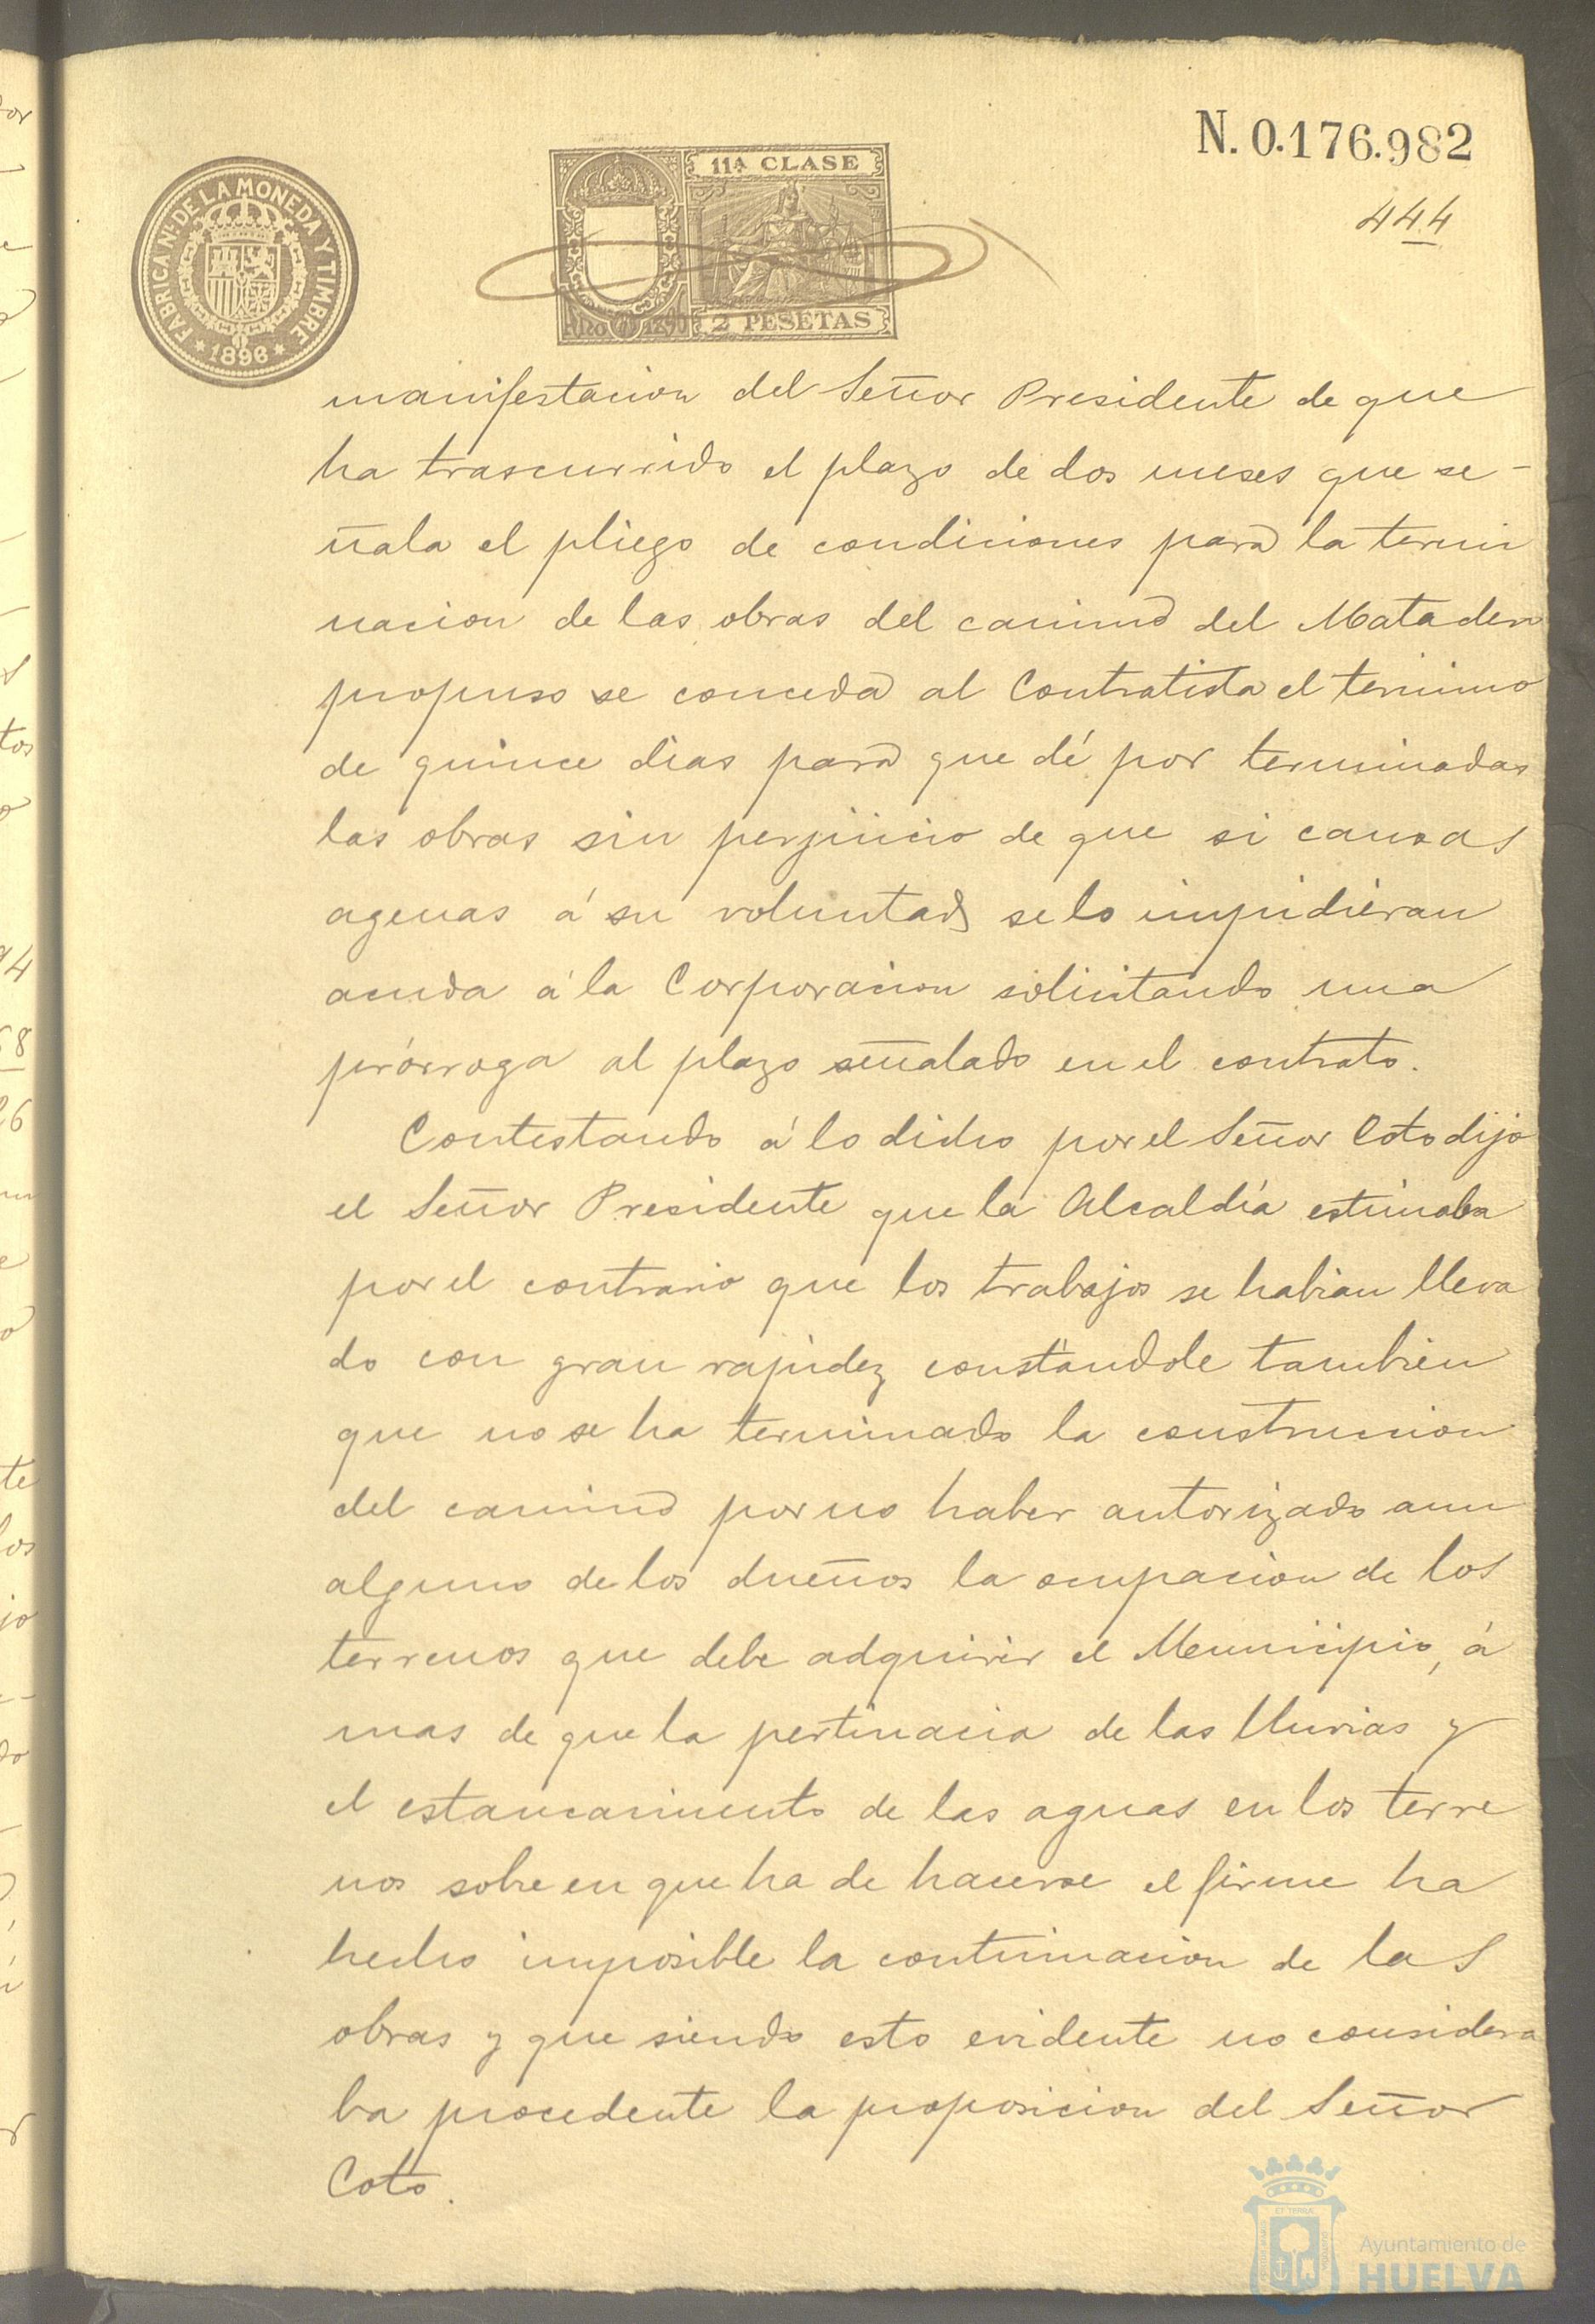 N. 0.176.982
444
FABRICA Nal. DE LA MONEDA Y TIMBRE
* 1896 *
11ª CLASE
2 PESETAS
manifestacion del Señor Presidente de que
ha trascurrido el plazo de dos meses que se-
ñala el pliego de condiciones para la termi
nacion de las obras del camino del Matadero
propuso se conceda al Contratista el termino
de quince dias para que dé por terminadas
las obras sin perjuicio de que si causas
agenas á su voluntad se lo impidieran
acuda á la Corporacion solicitando una
prórroga al plazo señalado en el contrato.
Contestando á lo dicho por el Señor Coto dijo
el Señor Presidente que la Alcaldía estimaba
por el contrario que los trabajos se habian lleva
do con gran rapidez constandole tambien
que no se ha terminado la construccion
del camino por no haber autorizado aun
alguno de los dueños la ocupacion de los
terrenos que debe adquirir el Municipio, á
mas de que la pertinacia de las lluvias y
el estancamiento de las aguas en los terre
nos sobre en que ha de hacerse el firme ha
hecho imposible la continuacion de las
obras y que siendo esto evidente no considera
ba procedente la proposicion del Señor
Coto.
Ayuntamiento de
HUELVA